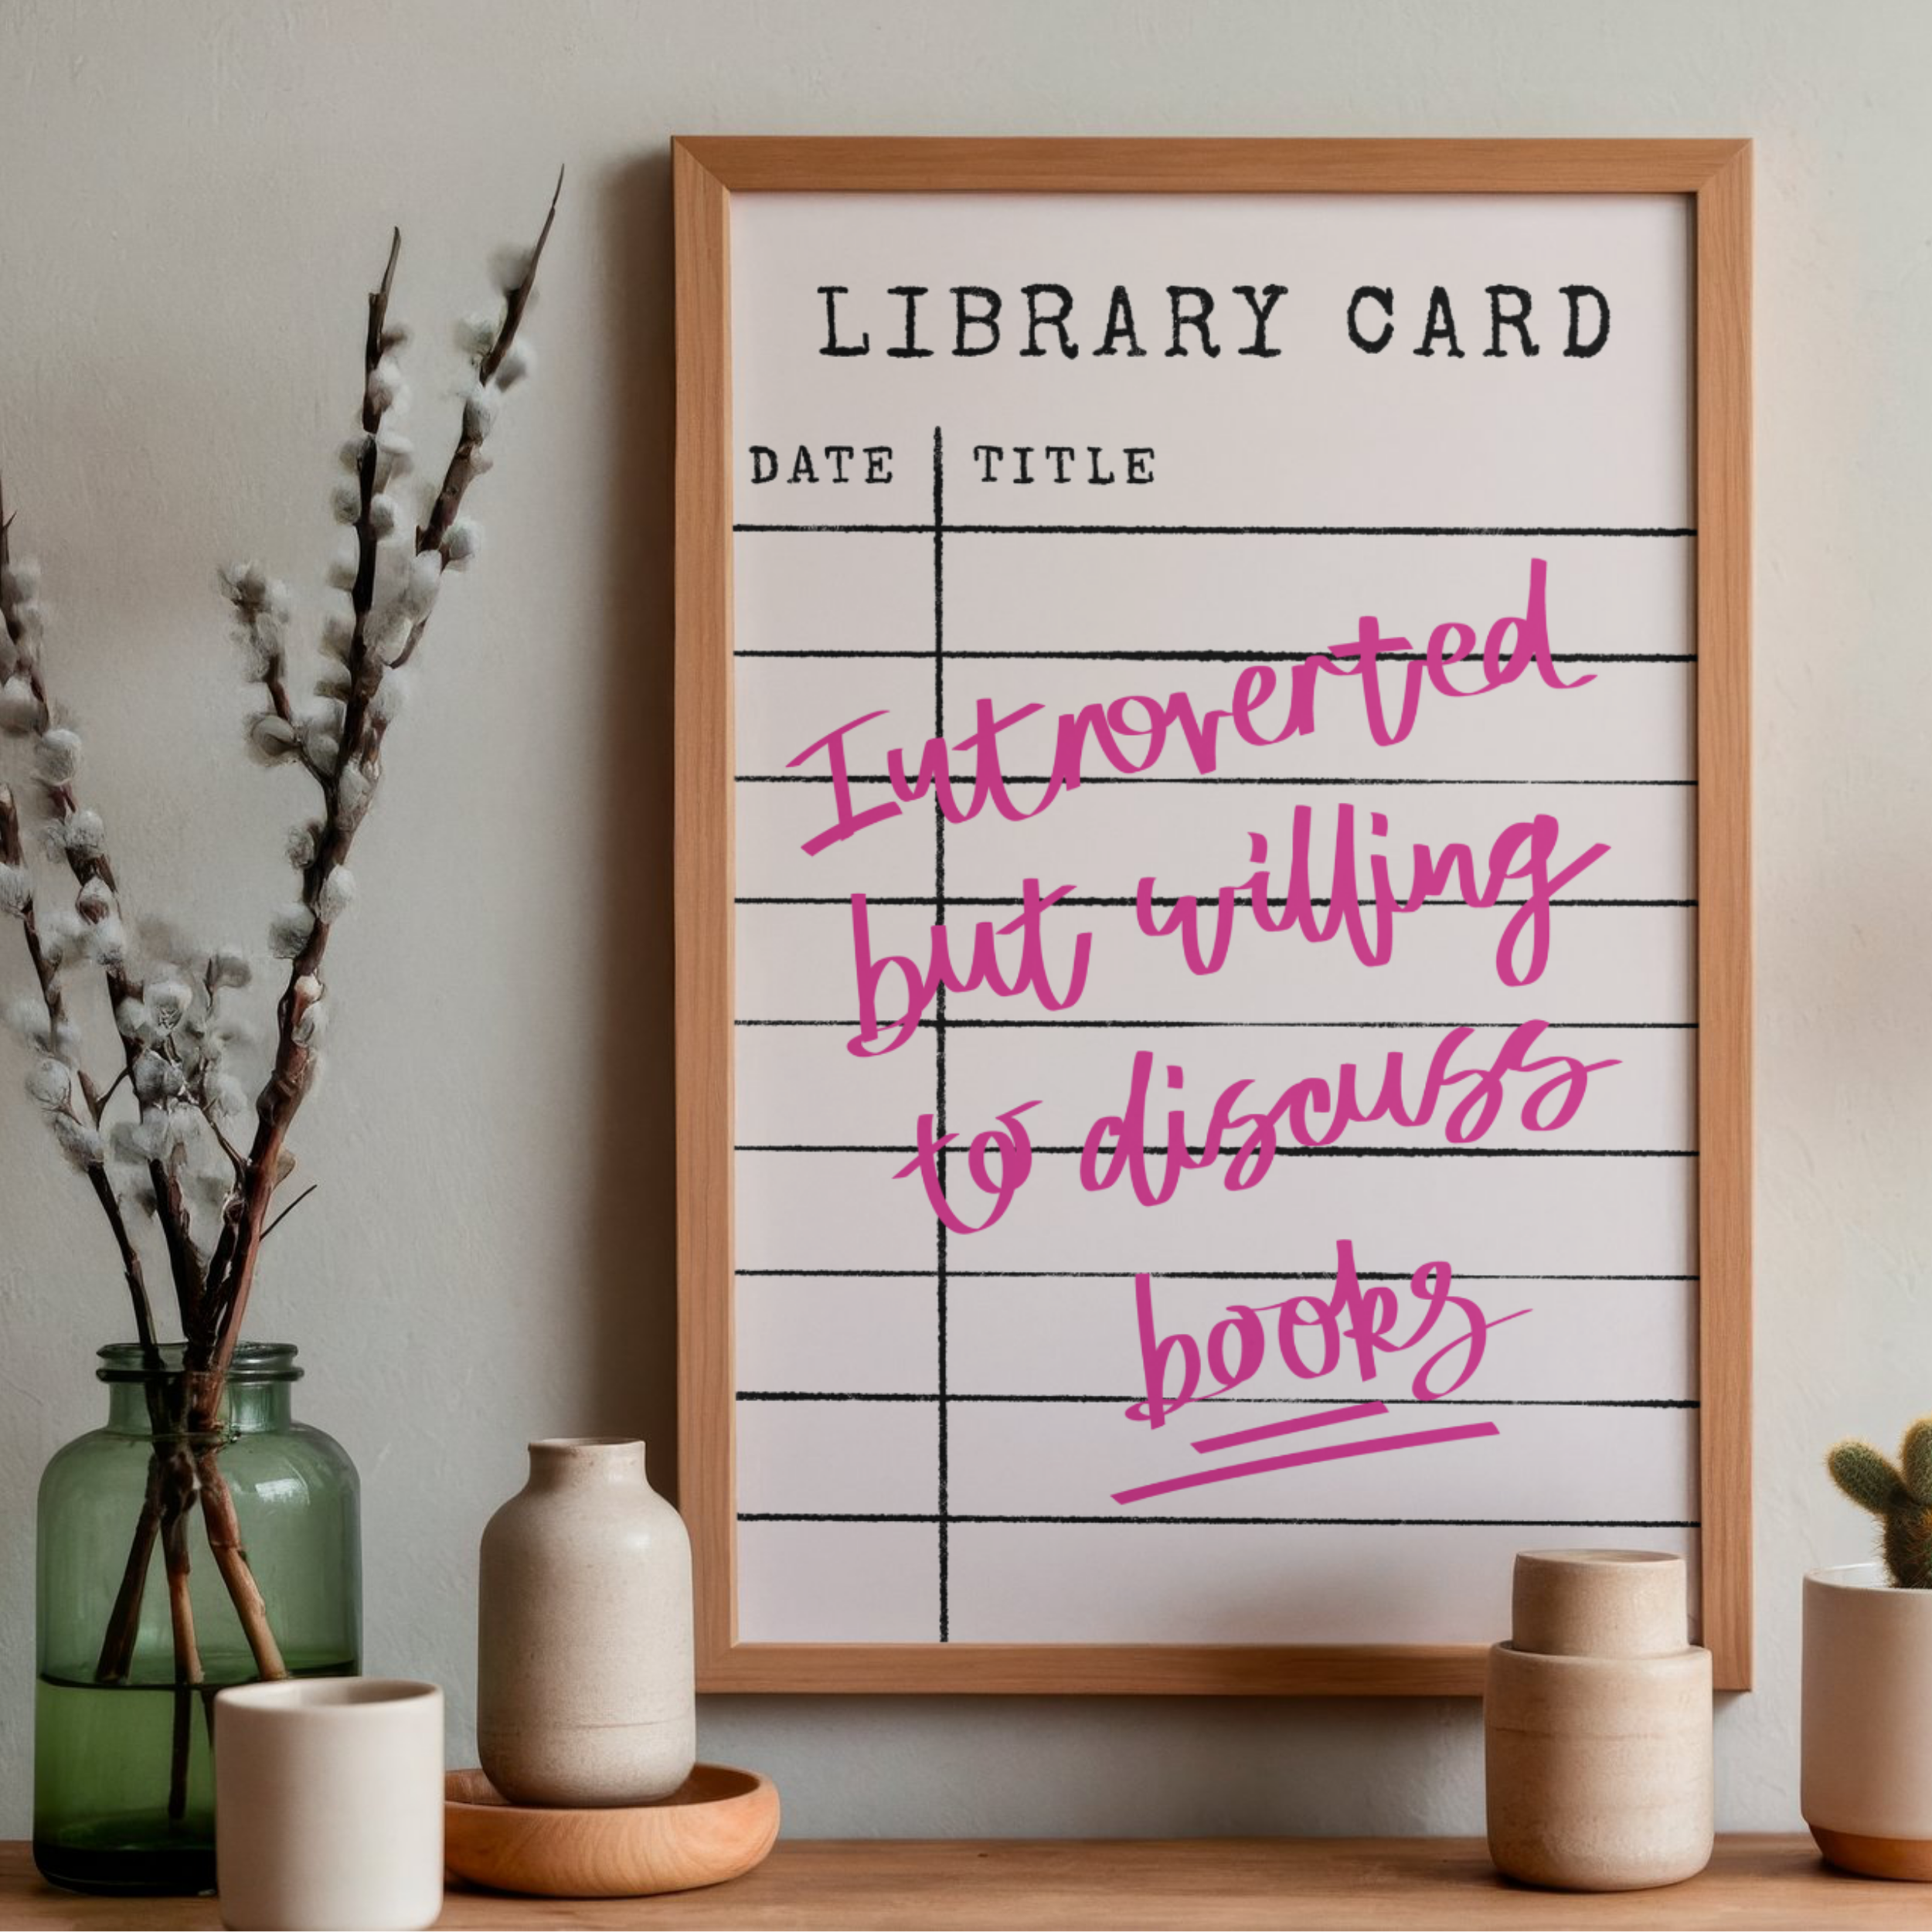 LIBRARY CARD
DATE TITLE
Introverted
but willing
to discuss
books